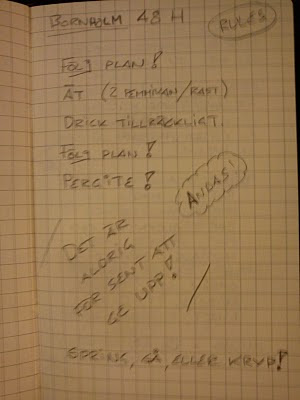 BORNHOLM 48 H
RULES
FÖLJ PLAN!
ÄT (2 PEMMIKAN/RAST)
DRICK TILLRÄCKLIGT.
FÖLJ PLAN!
ANDAS!
DET ÄR
ALDRIG
FÖR SENT ATT
GE UPP!
SPRING, GÅ, ELLER KRYP!